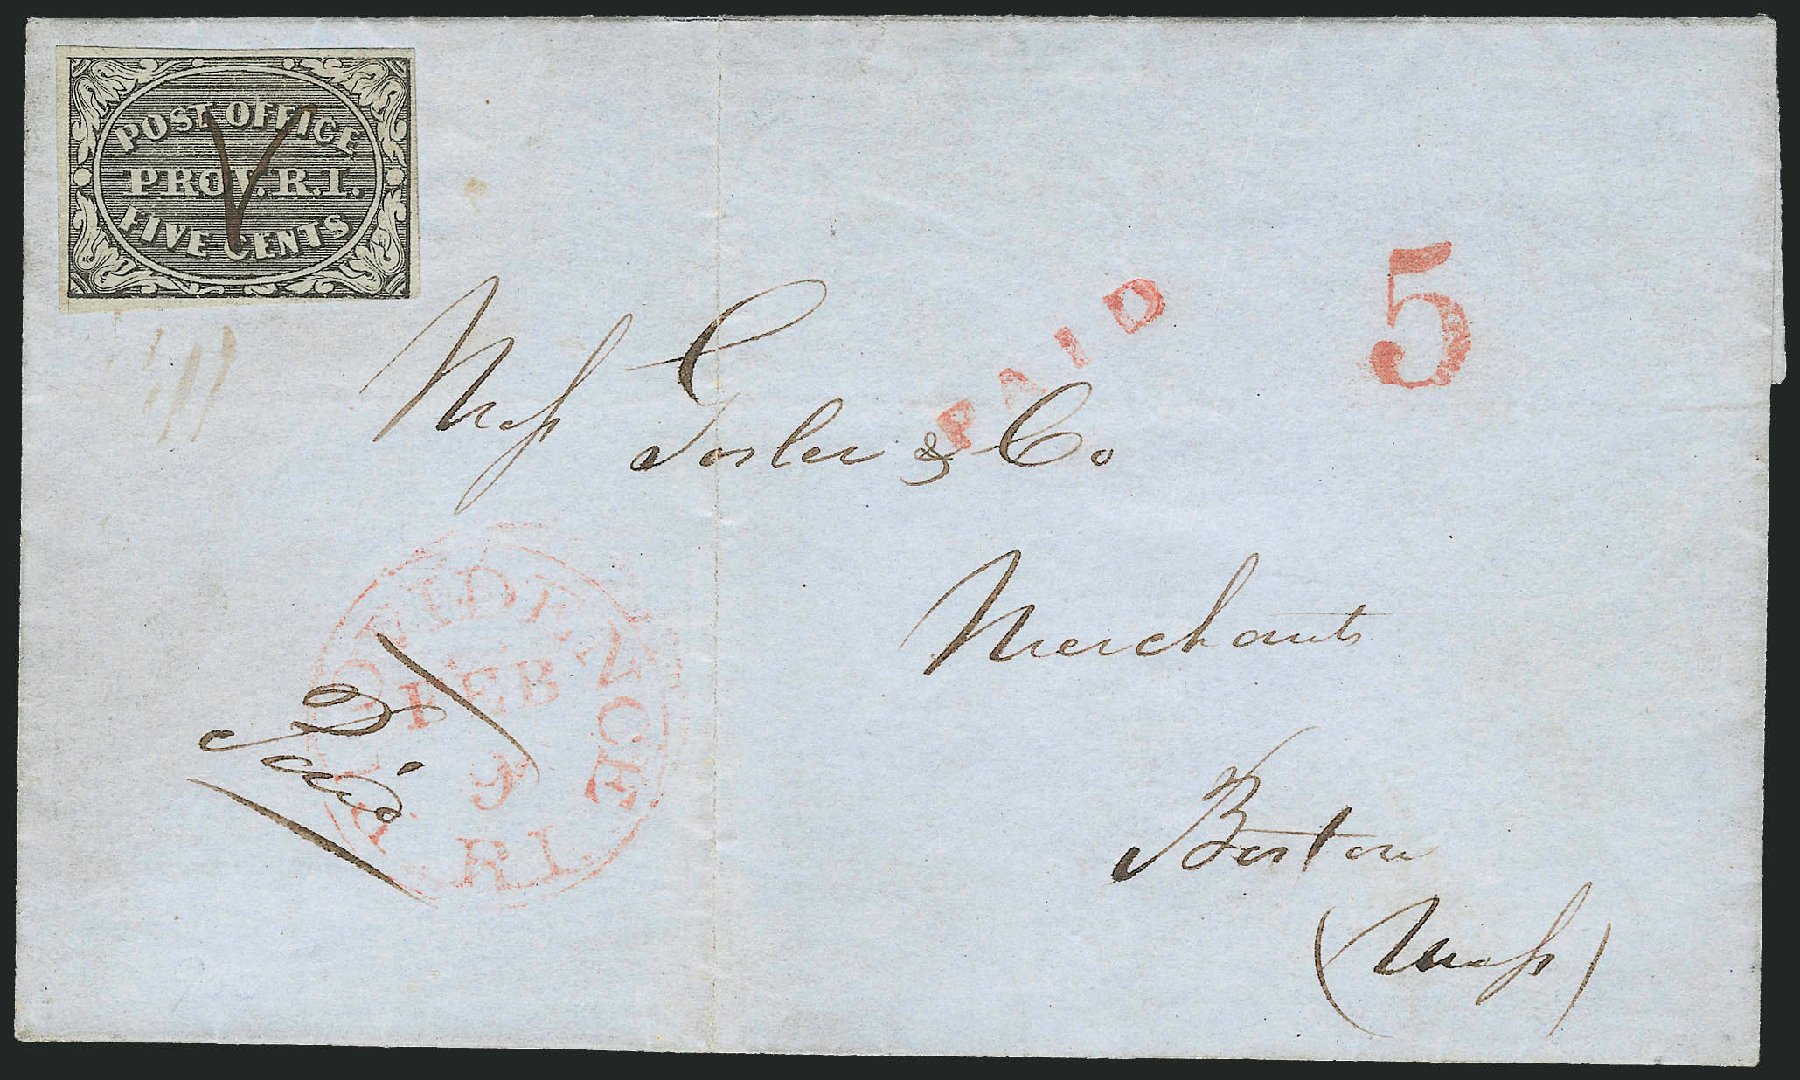 POST OFFICE
PROV. R. I.
FIVE CENTS
5
PAID
Mess
& Co
Merchants
PROVIDENCE
FEB
9
R.I.
Paid
Boston
(Mass)